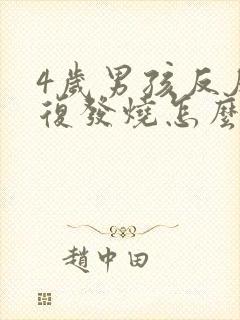 4歲男孩反
復發燒怎麼
趙中田